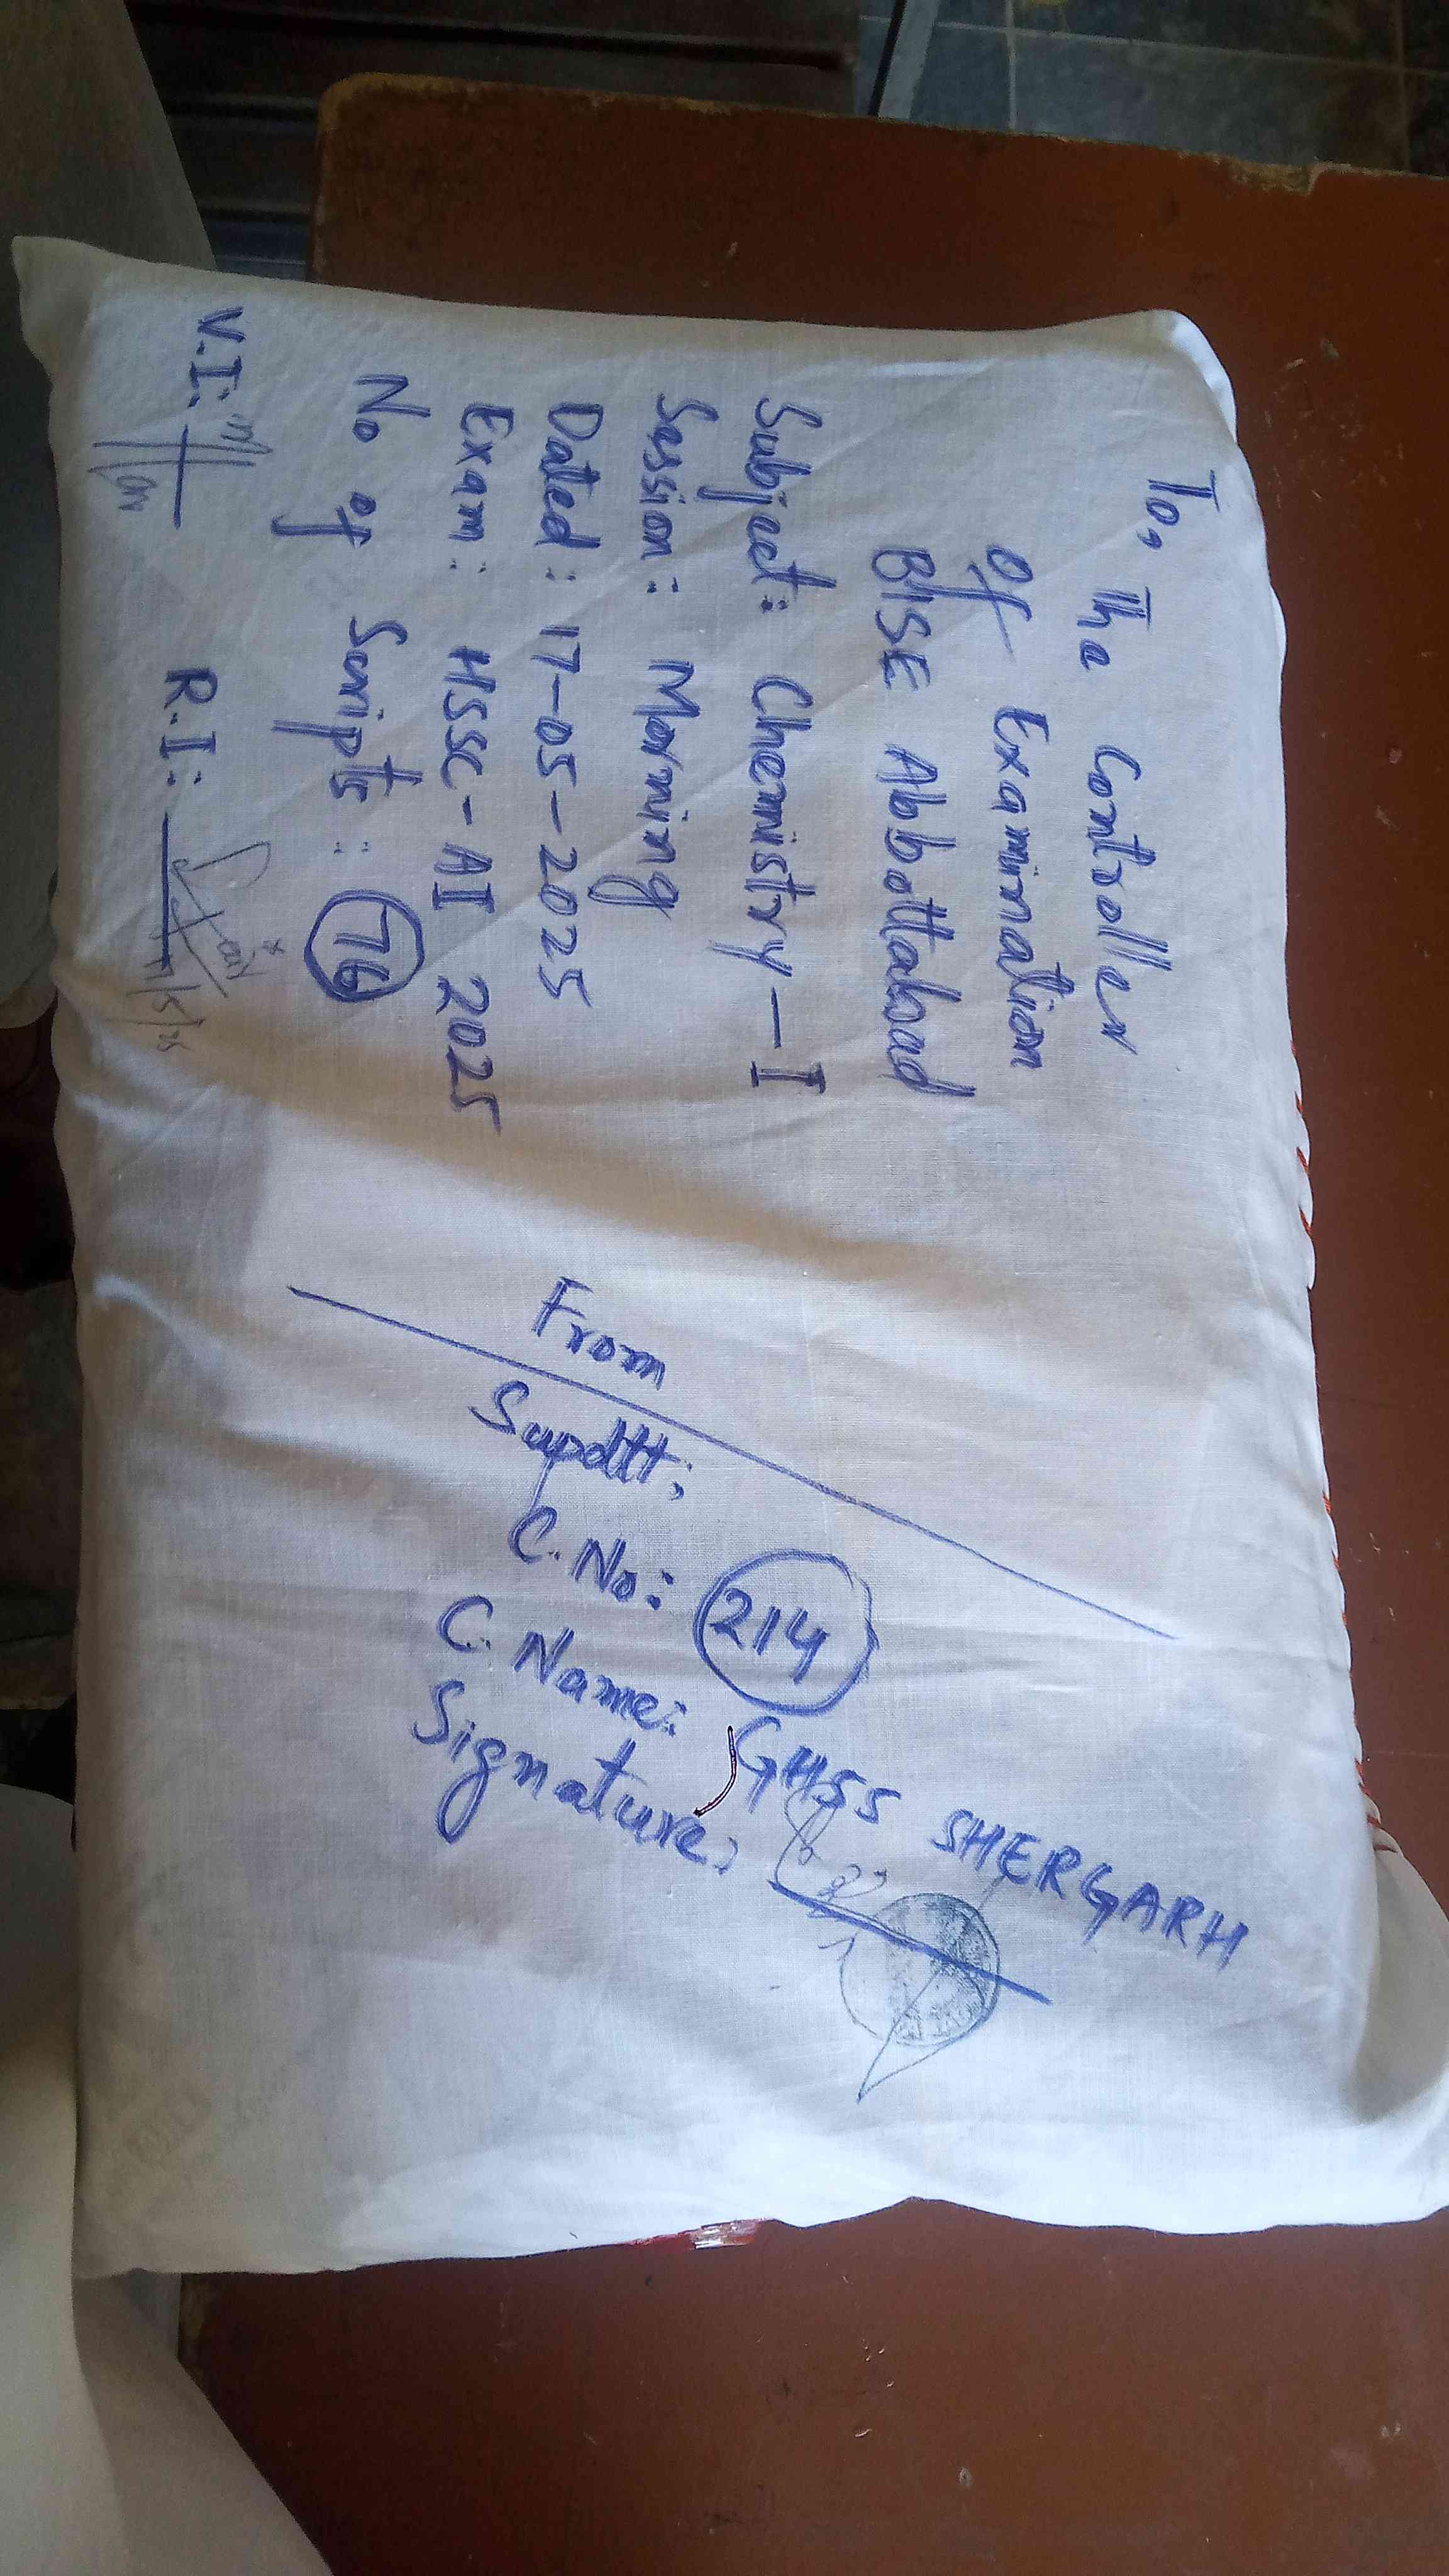 To, The Controller
Of Examination
BISE Abbottabad
Subject: Chemistry-I
Session: Morning
Dated: 17-05-2025
Exam: HSSC-AI 2025
No of Scripts: 76
V.I:
R.I:
From
Supdtt;
C. No: 214
C. Name: GHSS SHERGARH
Signature: